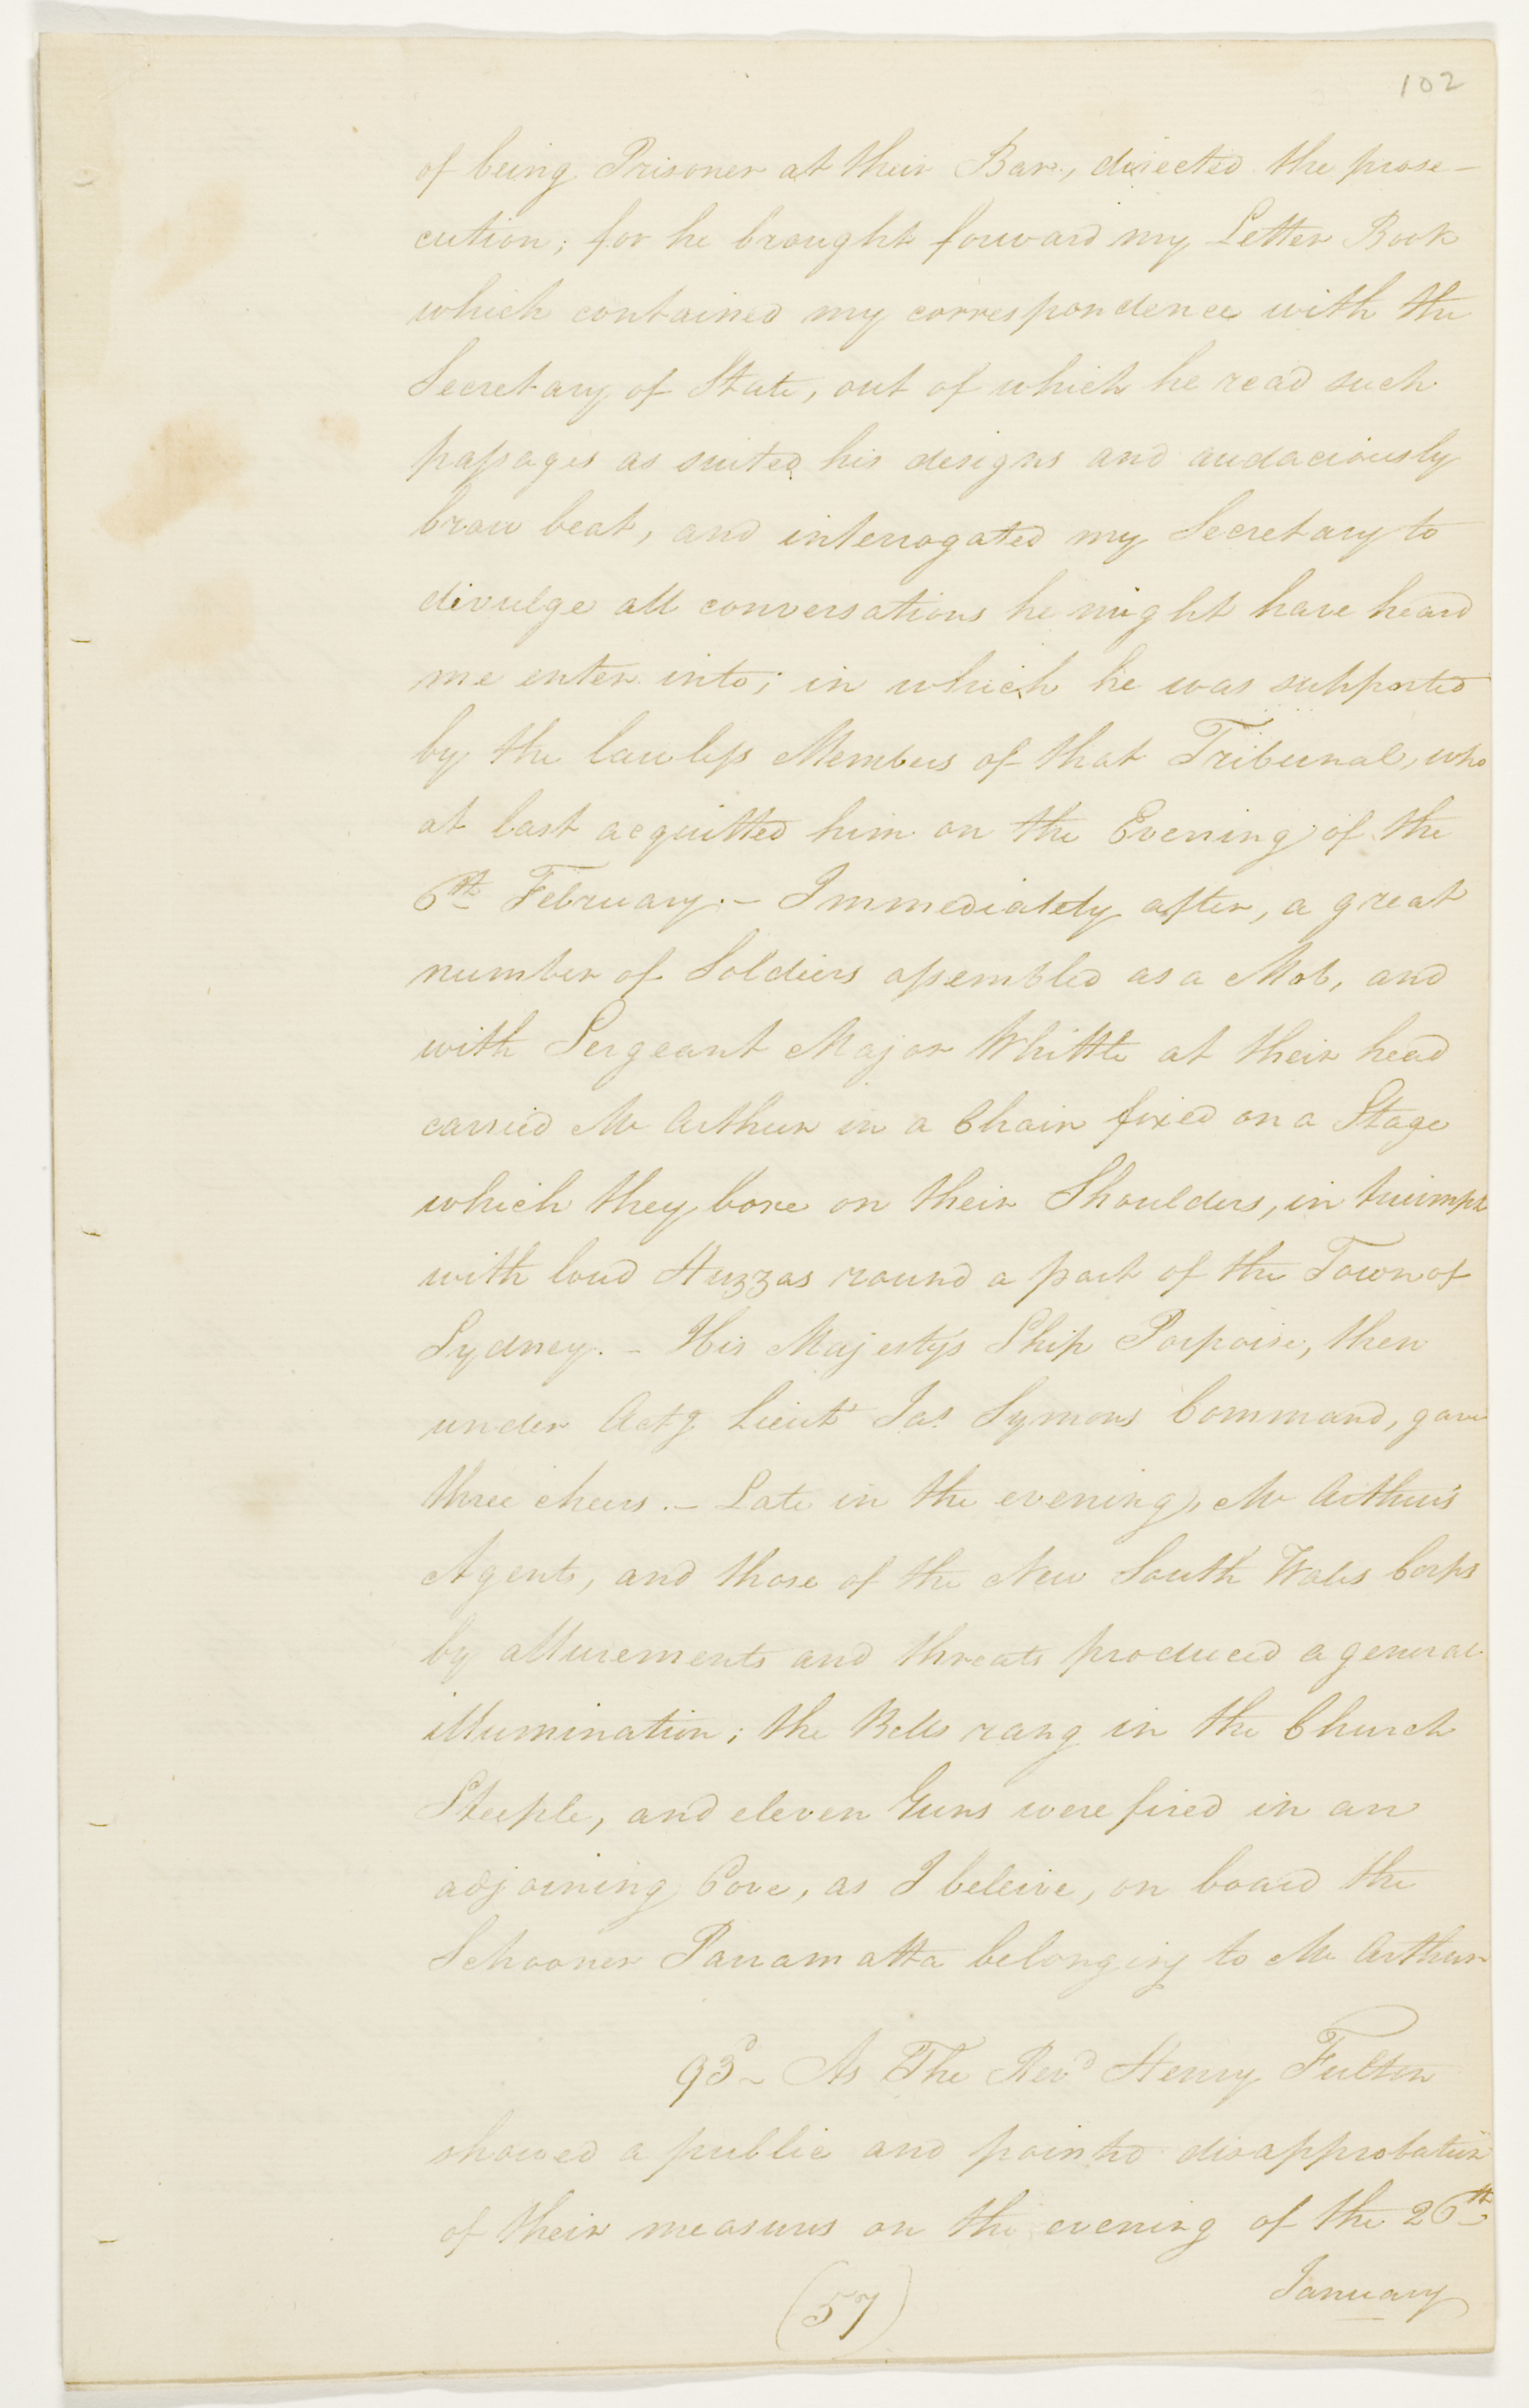 102
of being Prisoner at their Bar, directed the prose-
cution; for he brought forward my Letter Book
which contained my correspondence with the
Secretary of State, out of which he read such
passages as suited his designs and audaciously
brow beat, and interrogated my Secretary to
divulge all conversations he might have heard
me enter into; in which he was supported
by the lawless Members of that Tribunal, who
at last acquitted him on the Evening of the
6th February. - Immediately after, a great
number of Soldiers assembled as a Mob, and
with Sergeant Major Whittle at their head
carried Mc Arthur in a Chair fixed on a Stage
which they bore on their Shoulders, in triumph
with loud Huzzas round a part of the Town of
Sydney. - His Majesty's Ship Porpoise, then
under Actg Lieut Jas Symons Command, gave
three cheers. - Late in the evening, Mc Arthur's
Agents, and those of the New South Wales Corps
by allurements and threats produced a general
illumination; the Bells rang in the Church
Steeple, and eleven Guns were fired in an
adjoining Cove, as I beleive, on board the
Schooner Parramatta belonging to Mc Arthur
93d - As The Revd Henry Fulton
showed a public and pointed disapprobation
of their measures on the evening of the 26th
January
(57)